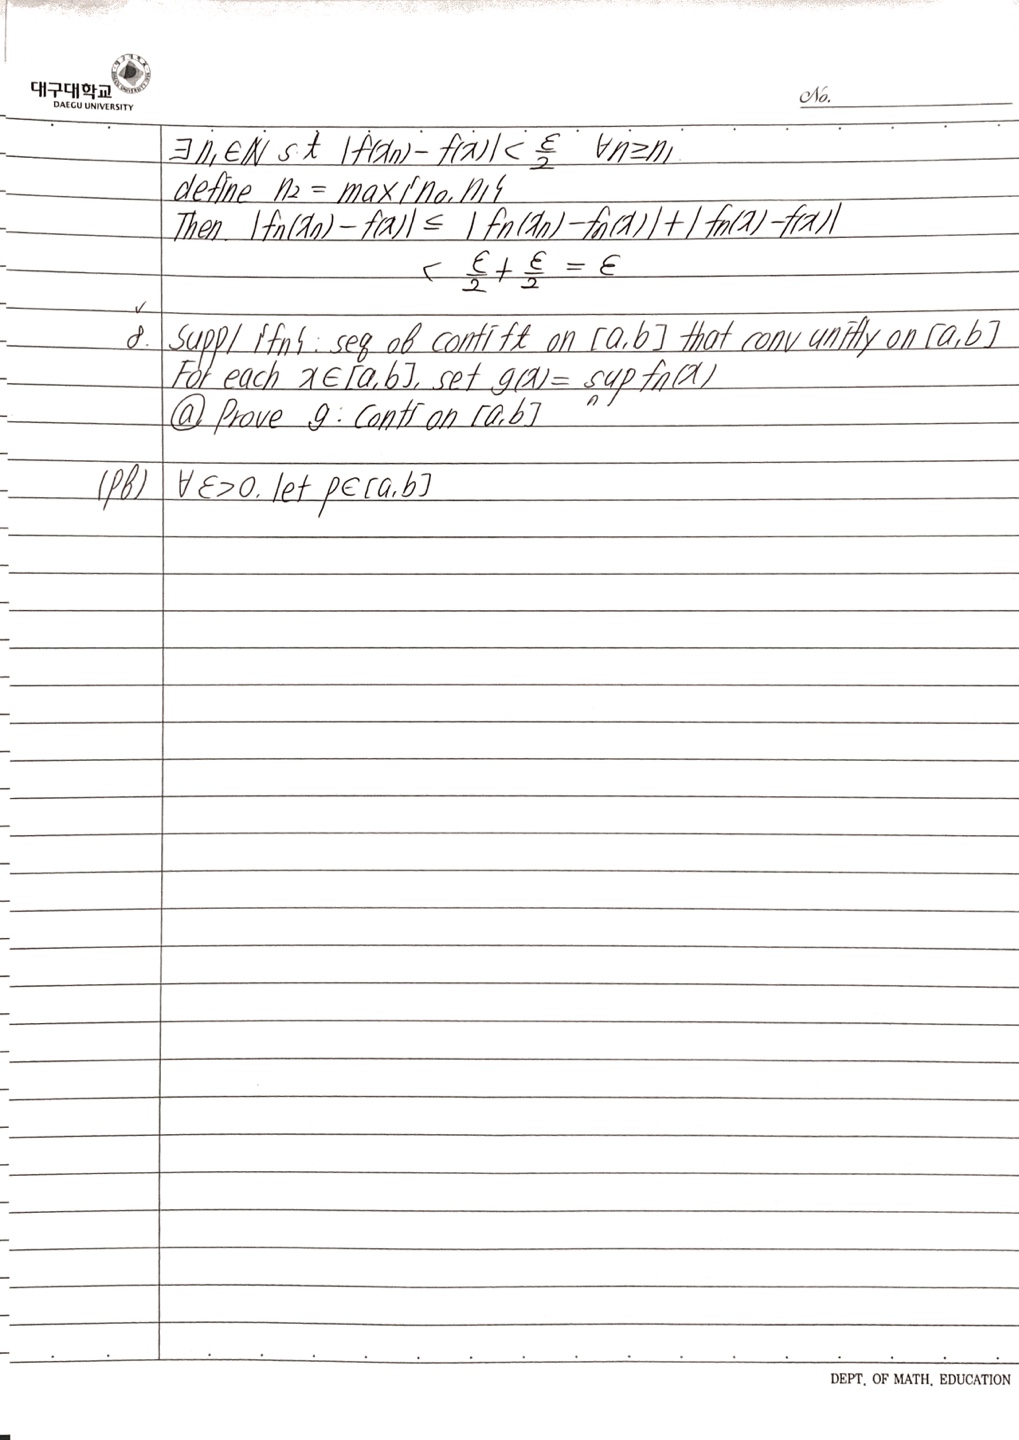 대구대학교
DAEGU UNIVERSITY
No.
∃n₁∈N s.t |f(xn)-f(x)|<ε/2 ∀n≥n₁
define n₂ = max{n₀, n₁}
Then |fn(xn)-f(x)| ≤ |fn(xn)-fn(x)|+|fn(x)-f(x)|
< ε/2 + ε/2 = ε
✓
8. Supp/ {fn}: seq of conti ft on [a,b] that conv unifly on [a,b]
For each x∈[a,b], set g(x)= sup fn(x)
n
ⓐ Prove g: conti on [a,b]
(pf) ∀ε>0. let p∈[a,b]
DEPT. OF MATH. EDUCATION